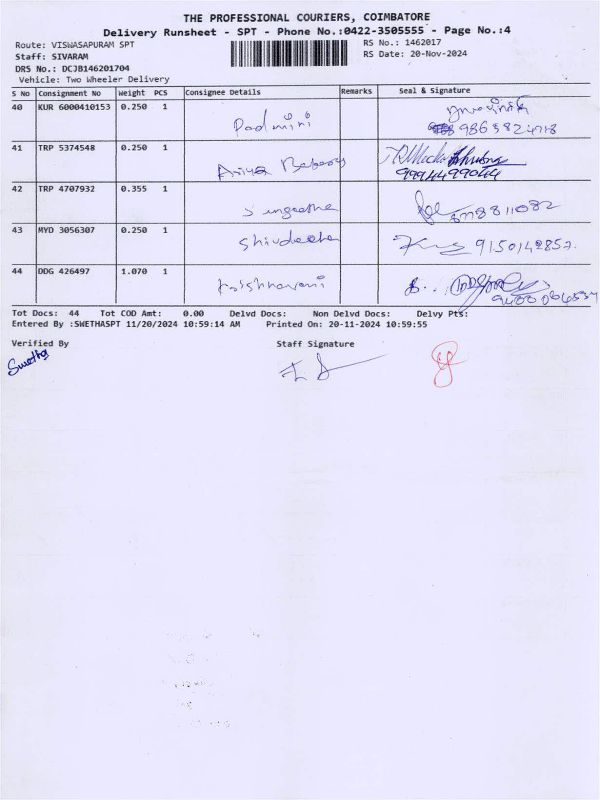 THE PROFESSIONAL COURIERS, COIMBATORE
Delivery Runsheet - SPT - Phone No.:0422-3505555 - Page No.:4
Route: VISWASAPURAM SPT RS No.: 1462017
Staff: SIVARAM RS Date: 20-Nov-2024
DRS No.: DCJB146201704
Vehicle: Two Wheeler Delivery
S No Consignment No Weight PCS Consignee Details Remarks Seal & Signature
40 KUR 6000410153 0.250 1
Padmini
41 TRP 5374548 0.250 1
9994499044
42 TRP 4707932 0.355 1
Sungeetha
43 MYD 3056307 0.250 1
9150142852.
44 DDG 426497 1.070 1
Tot Docs: 44 Tot COD Amt: 0.00 Delvd Docs: Non Delvd Docs: Delvy Pts:
Entered By :SWETHASPT 11/20/2024 10:59:14 AM Printed On: 20-11-2024 10:59:55
Verified By Staff Signature
Swetha